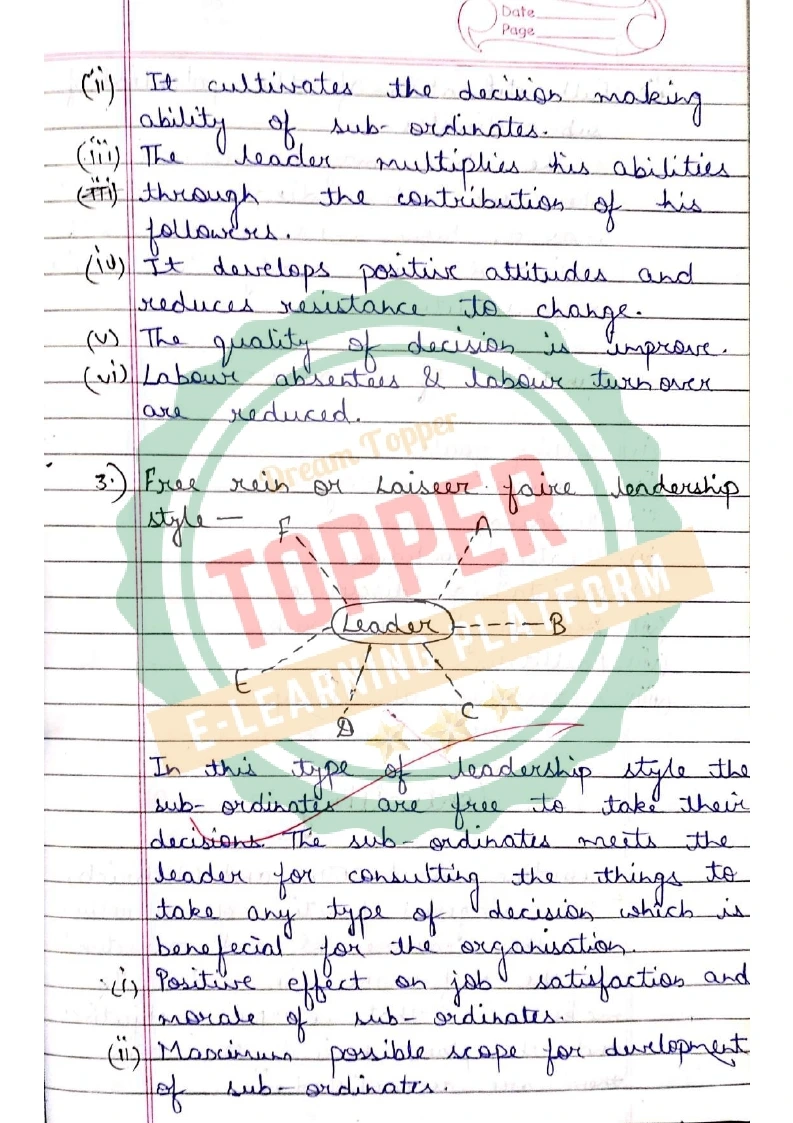 Date
Page
(ii) It cultivates the decision making
ability of sub-ordinates.
(iii) The leader multiplies his abilities
(iii) through the contribution of his
followers.
(iv) It develops positive attitudes and
reduces resistance to change.
(v) The quality of decision is improve.
(vi) Labour absentees & labour turnover
are reduced.
Dream Topper
TOPPER
E-LEARNING PLATFORM
3.) Free rein or Laiseer faire leadership
style —
F A
Leader B
E
D C
In this type of leadership style the
sub-ordinates are free to take their
decisions. The sub-ordinates meets the
leader for consulting the things to
take any type of decision which is
benefecial for the organisation.
(i) Positive effect on job satisfaction and
morale of sub-ordinates.
(ii) Maximum possible scope for development
of sub-ordinates.